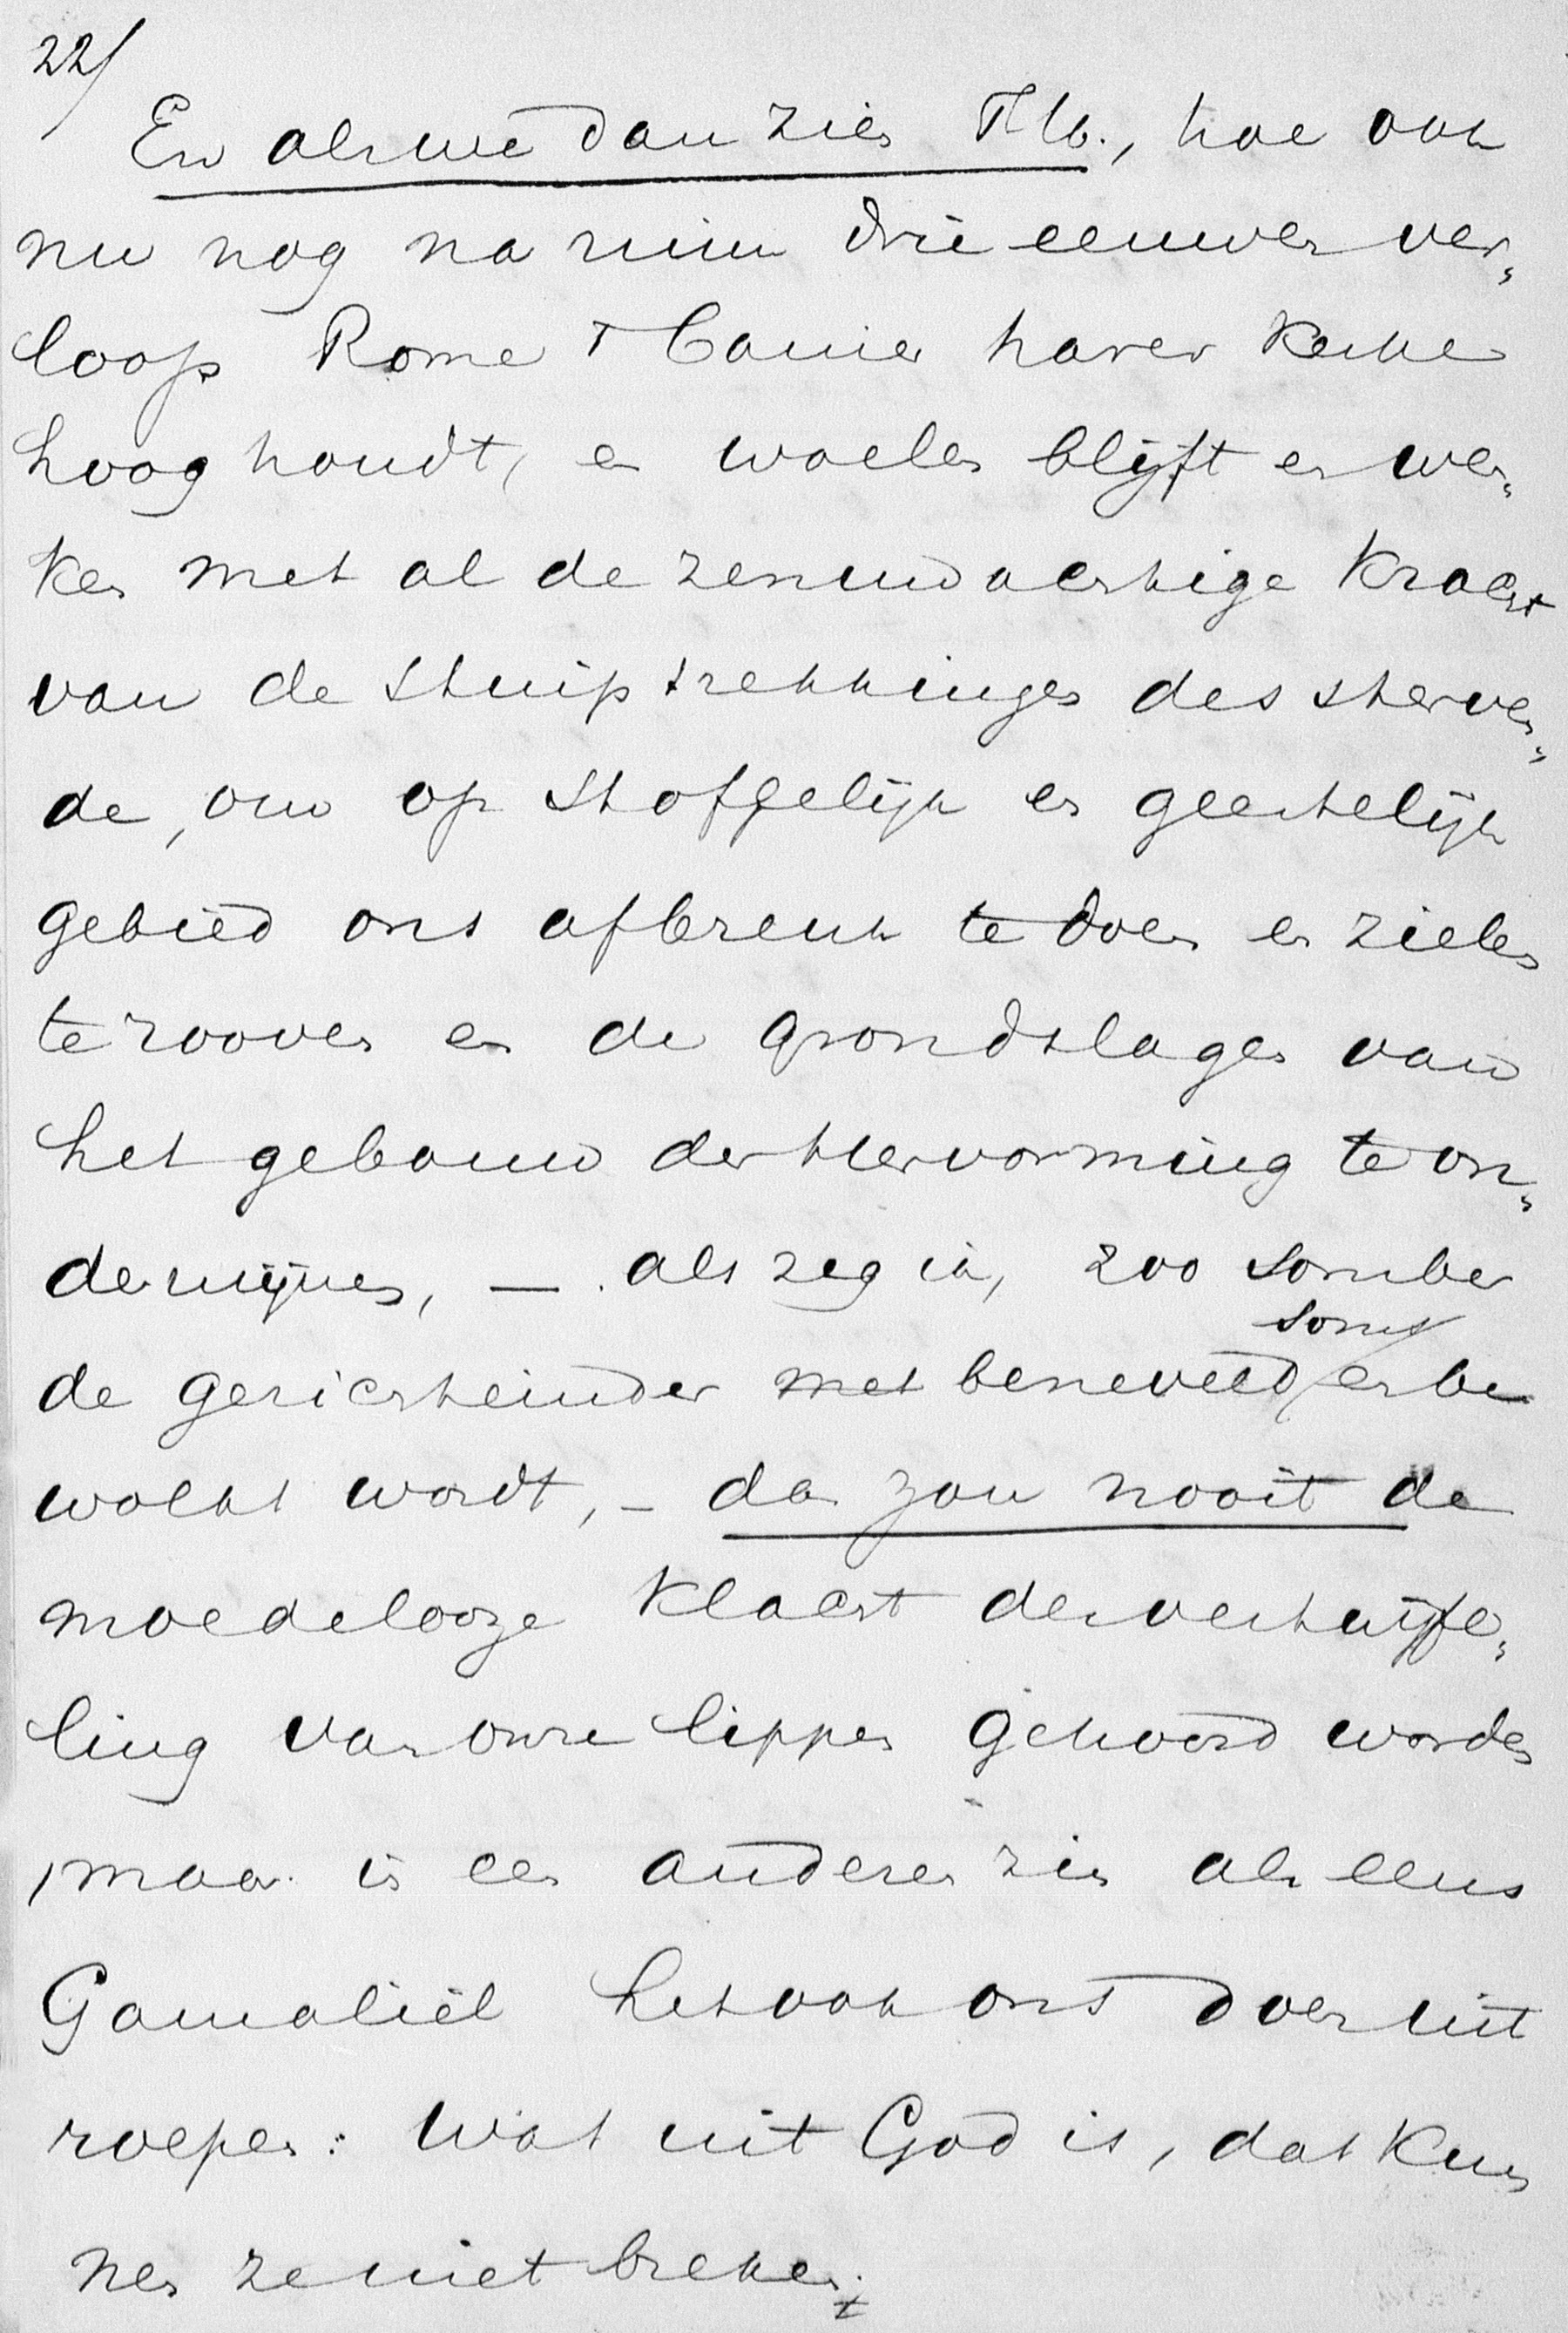 22/
En als we dan zien T. G., hoe ook
nu nog na ruim drie eeuwen ver„
loop Rome 't banier harer kerke
hoog houdt, en woelen blijft en wer„
ken met al de zenuwachtige kracht
van de stuiptrekkingen des sterven„
de, om op stoffelijk en geestelijk
gebied ons afbreuk te doen en zielen
te rooven en de grondslagen van
het gebouw der Hervorming te on„
dermijnen, — als zeg ik, zoo somber
de gezichteinder met beneveld soms en be
wolkt wordt, – dan zou nooit de
moedelooze klacht der vertwijfe„
ling van onze lippen gehoord worden
, maar in een anderen zin als eens
Gamaliël het ook ons doen uit
roepen: Wat uit God is, dat kun
nen ze niet breken.